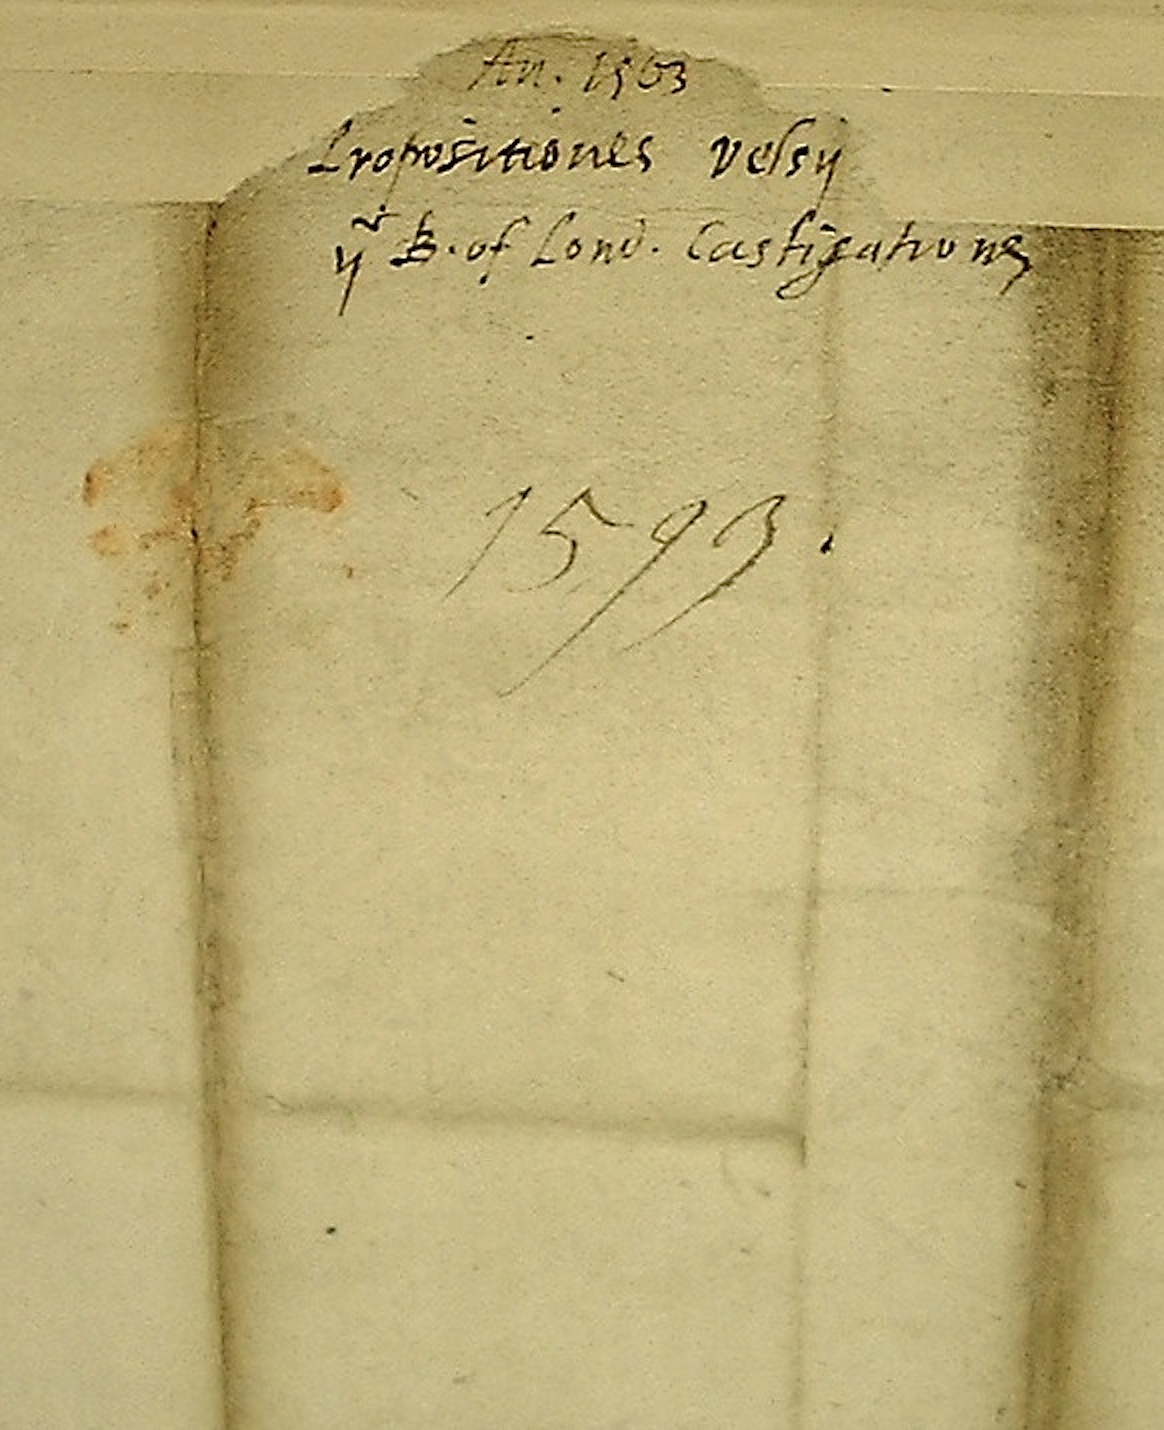 An. 1563
Propositiones Velsij
yͤ B. of Lond. Castigations
1593.